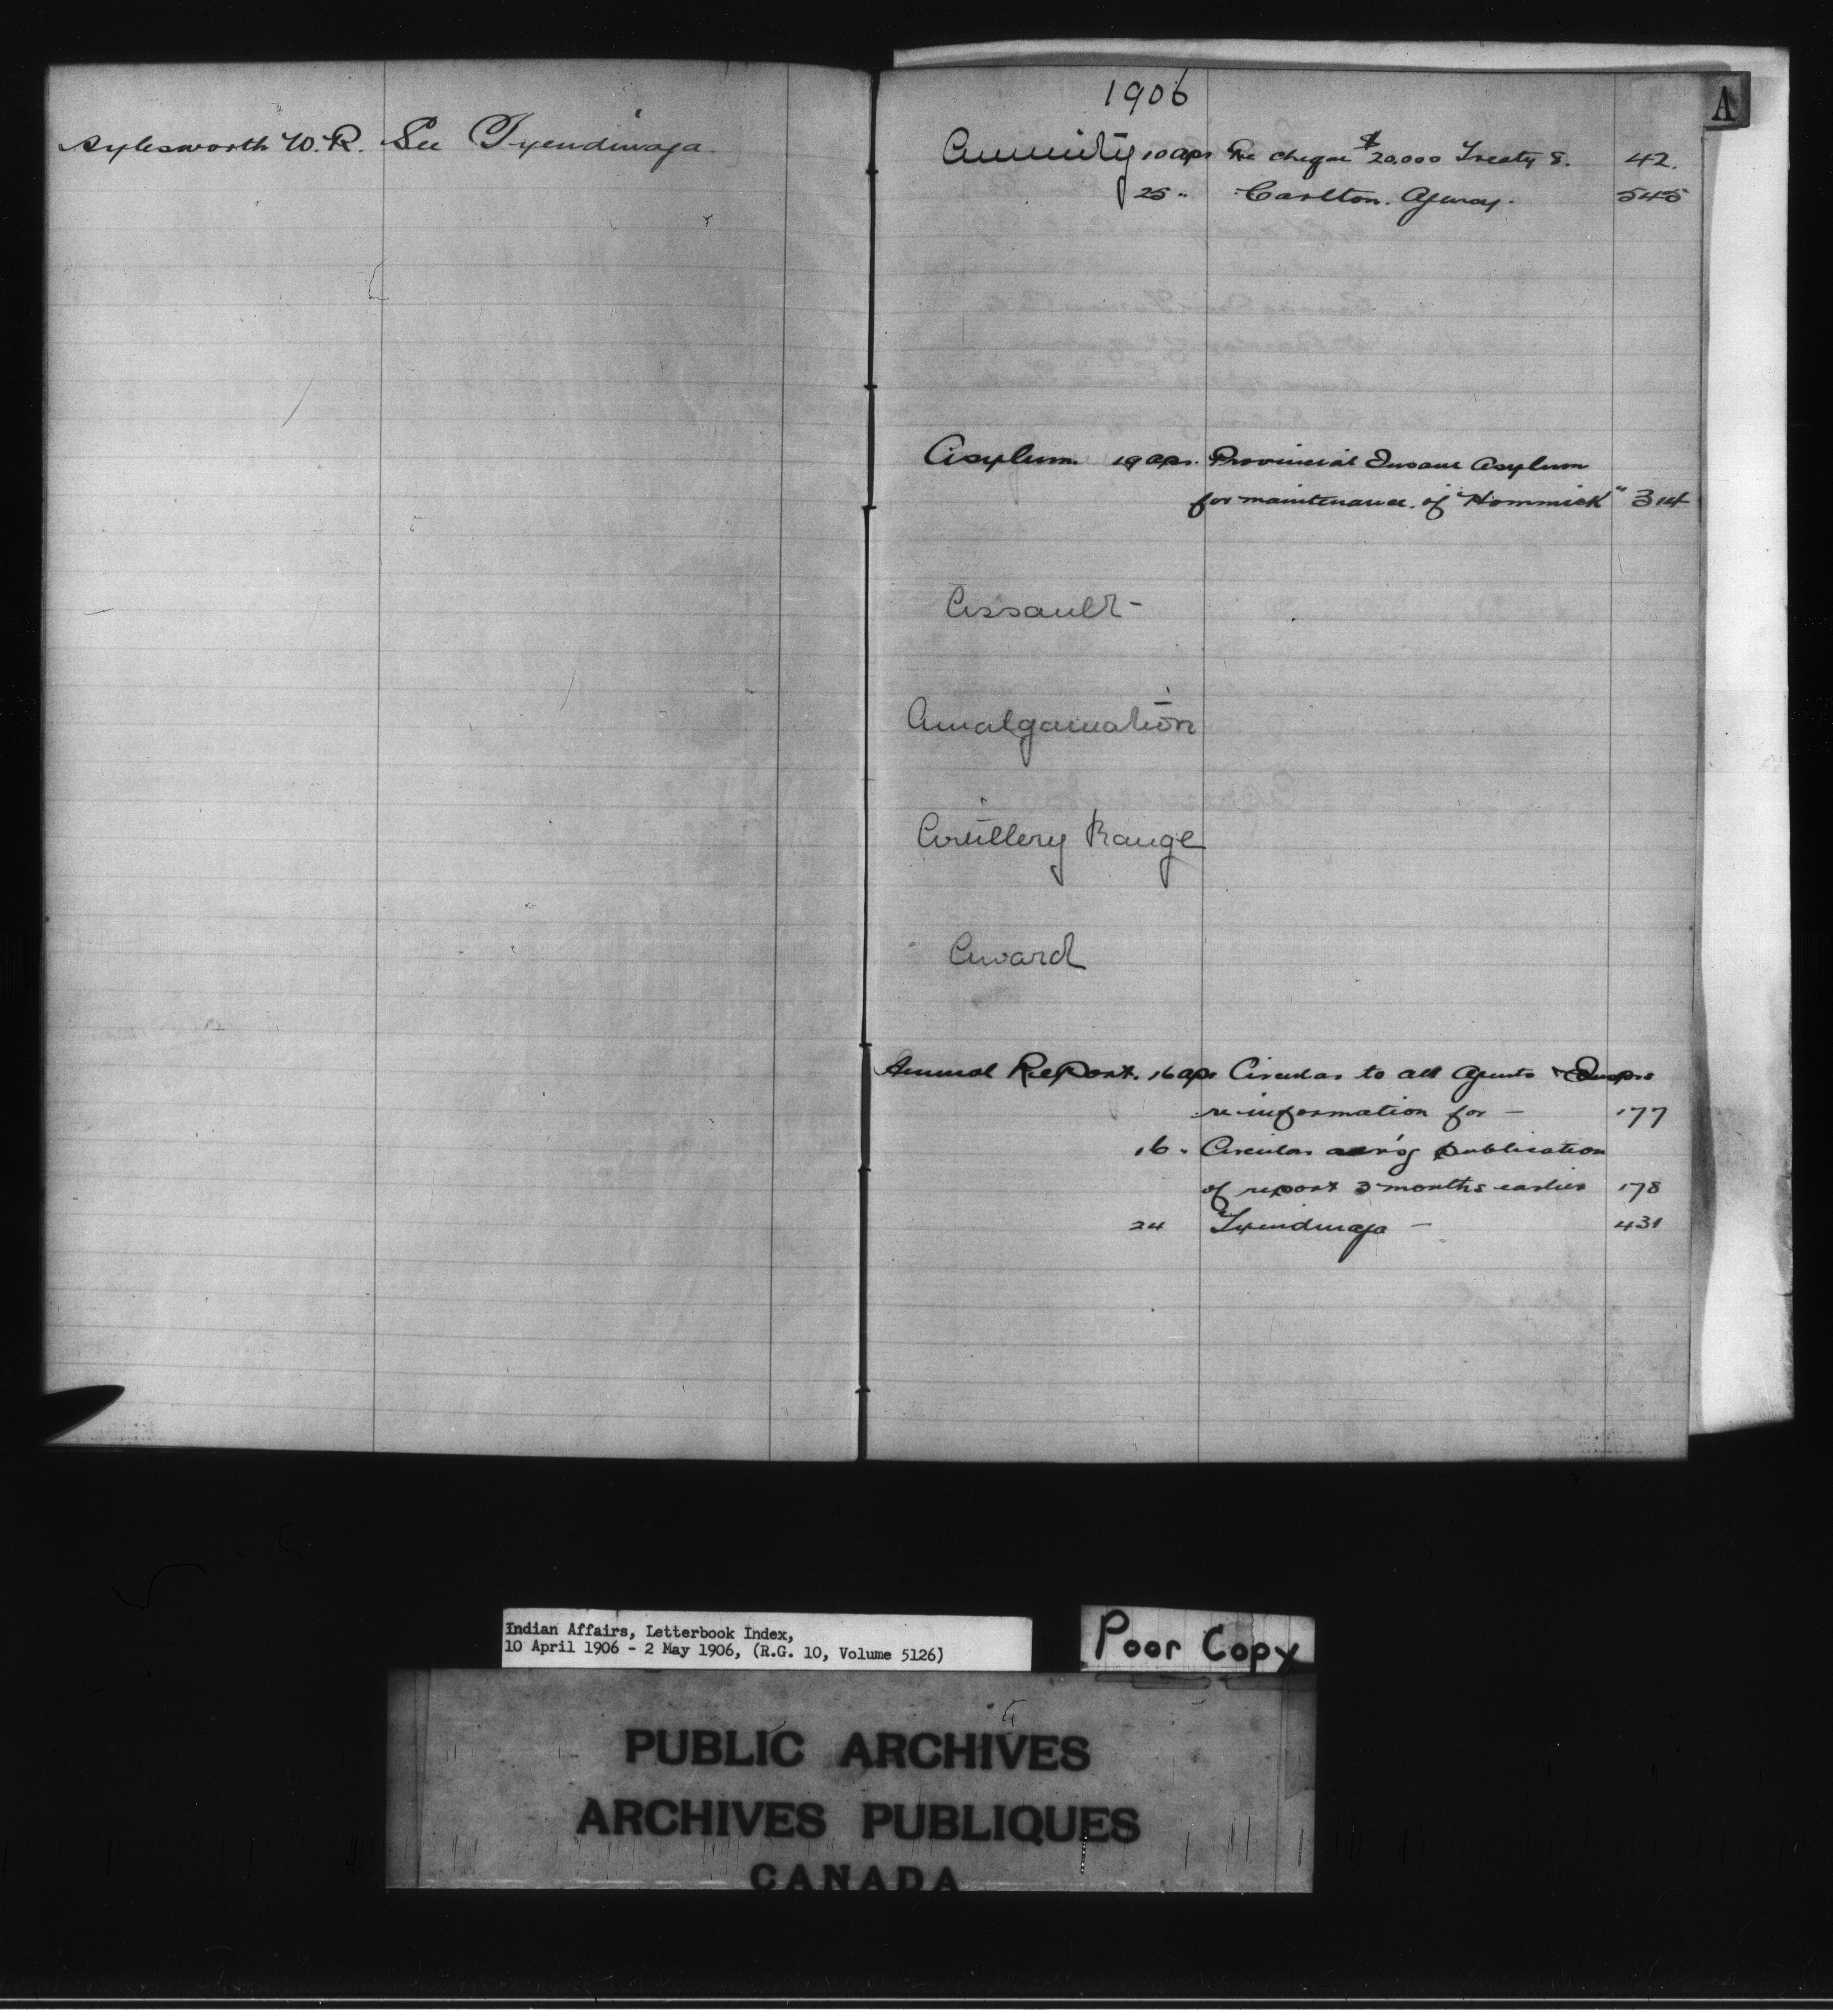 Aylesworth W. R. See Tyendinaga.
1906
A
Annuity 10 Apr Re cheque $20,000 Treaty 8. 42.
25 " Carlton Agency. 545
Asylum 19 Apr. Provincial Insane Asylum
for maintenance of "Hommick" 314
Assault -
Amalgamation
Artillery Range
Award
Annual Report. 16 Apr Circular to all Agents & Insprs
re information for - 177
16 " Circular publication
of report 3 months earlier 178
24 Tyendinaga - 431
Indian Affairs, Letterbook Index,
10 April 1906 - 2 May 1906, (R.G. 10, Volume 5126)
Poor Copy
PUBLIC ARCHIVES
ARCHIVES PUBLIQUES
CANADA